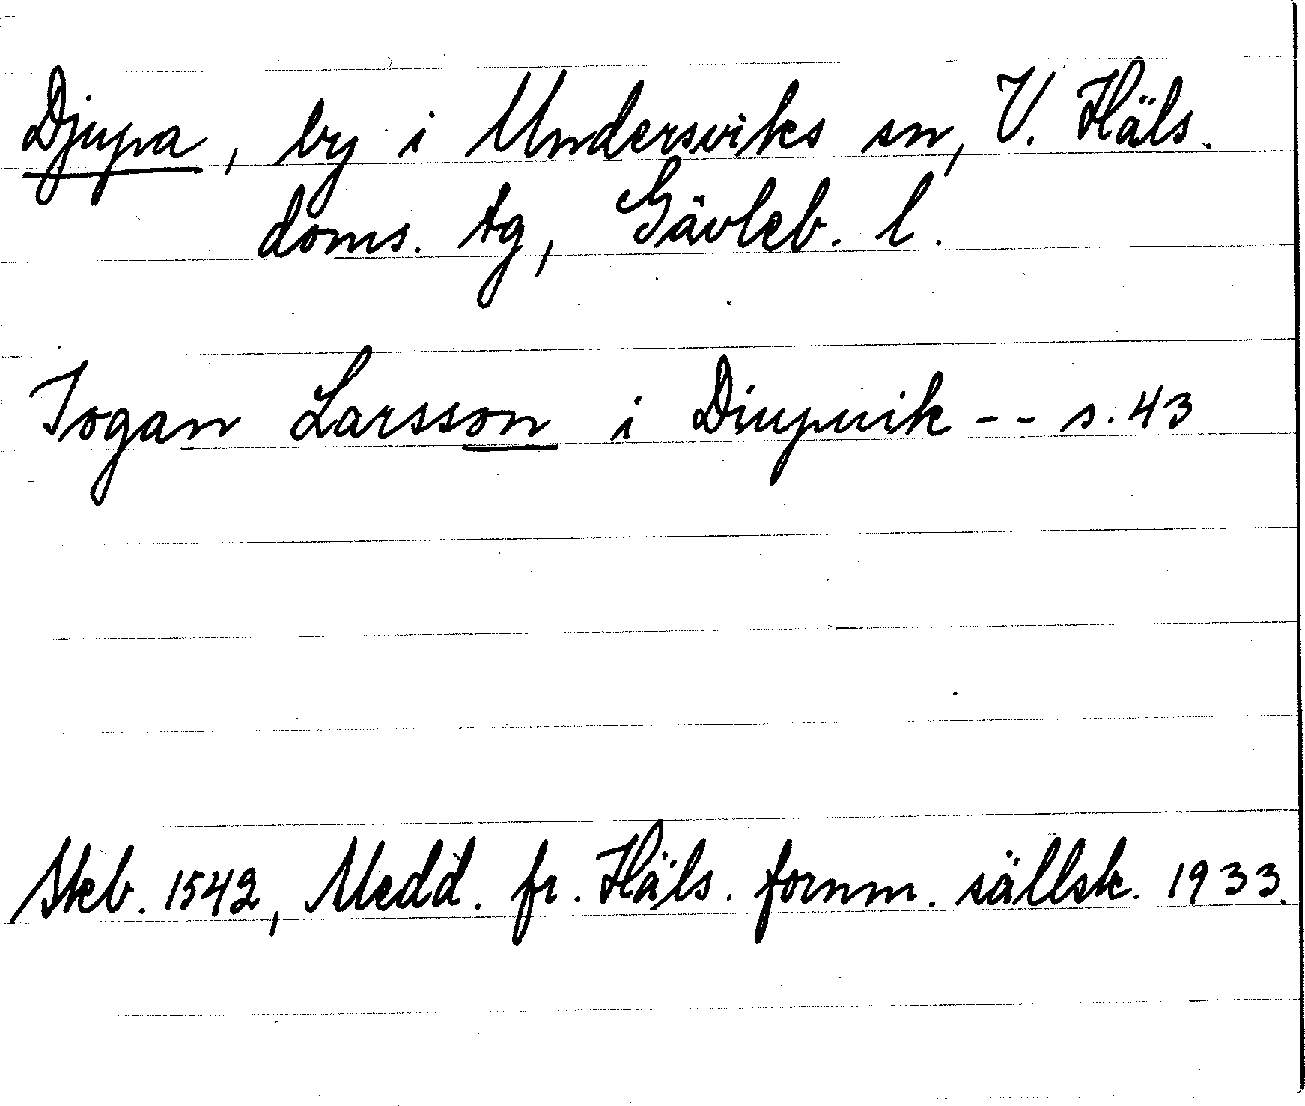 Djupa, by i Undersviks sn, V. Häls.
doms. tg, Gävleb. l.
Jogan Larsson i Diupuik -- s. 43
Skb. 1542, Medd. fr. Häls. fornm. sällsk. 1933.